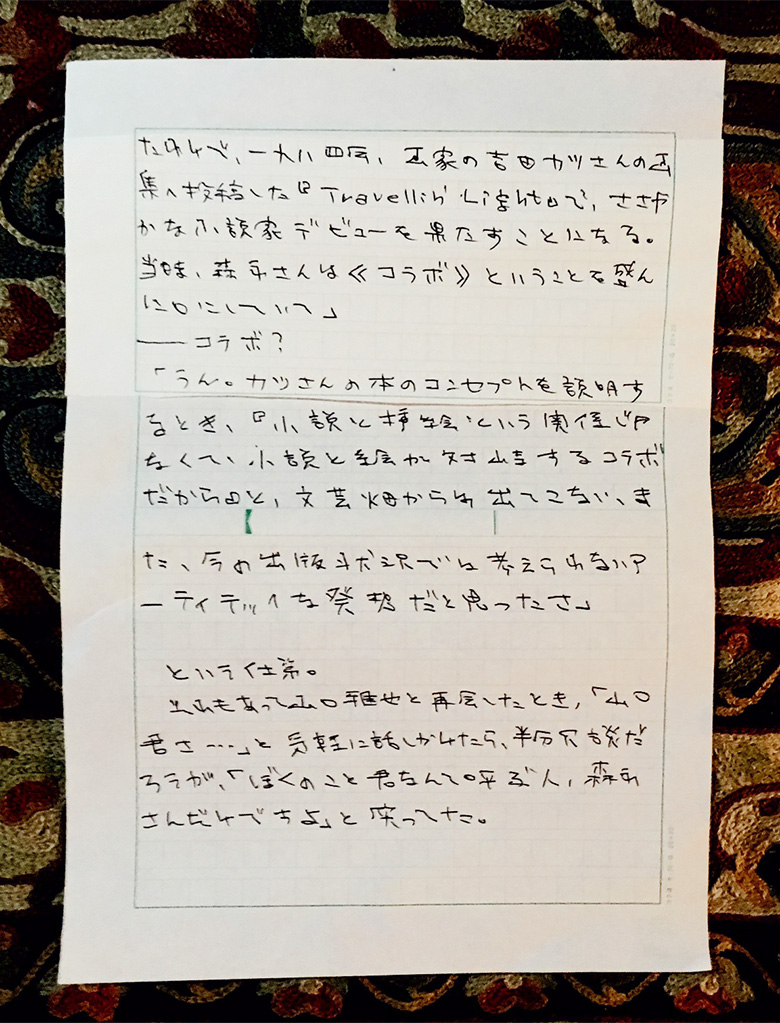 たわけで、一九八四年、画家の吉田カツさんの画
集へ投稿した『Travellin' Light』で、ささや
かな小説家デビューを果たすことになる。
当時、森永さんは《コラボ》ということを盛ん
に口にしていて」
――コラボ?
「うん。カツさんの本のコンセプトを説明す
るとき、『小説と挿絵という関係じゃ
なくて、小説と絵が対峙するコラボ
だから』と、文芸畑からは出てこない、ま
た、今の出版状況では考えられないア
ーティテックな発想だと思ったさ」
という次第。
もあって山口雅也と再会したとき,「山口
君さ……」と気軽に話しかけたら、半分冗談だ
ろうが、「ぼくのこと君なんて呼ぶ人、森永
さんだけですよ」と笑ってた。